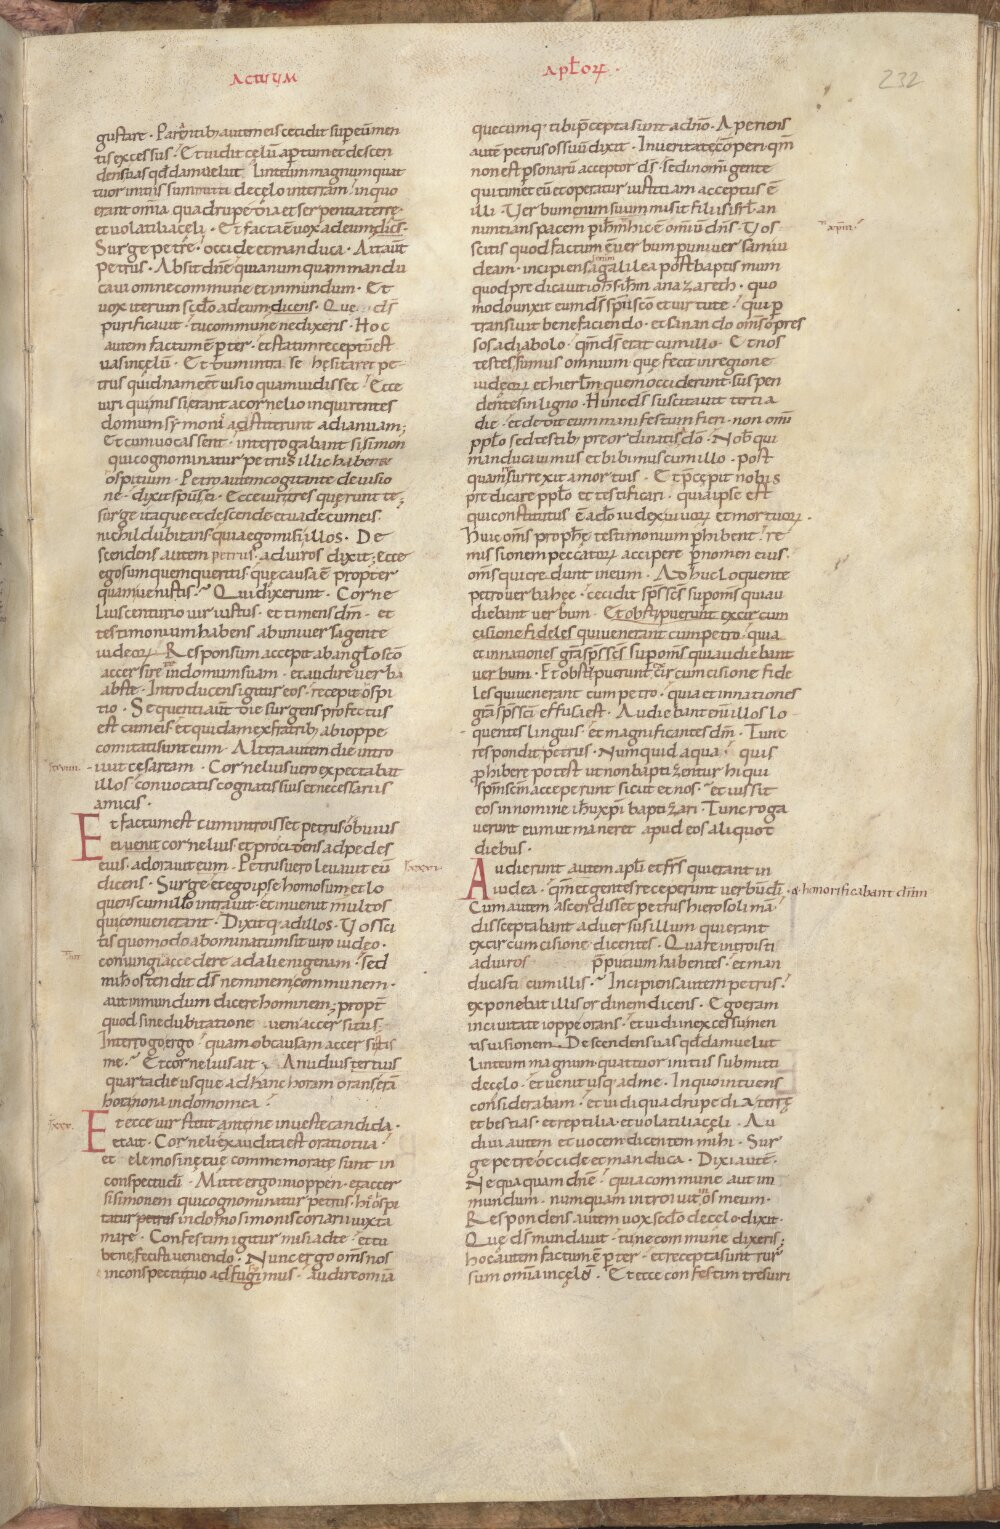 ACTUUM
APŁOꝜ.
232
gustare · Parantib; autem eis cecidit sup eū men
tis excessus · Et uidit cęlū aptum et descen
dens uas qđdam uelut linteum magnum quat
tuor initiis summitti de cęlo in terram · in quo
erant omīa quadrupedia et serpentia terrę ·
et uolatilia cęli · Et facta ē uox ad eum dic̄s ·
Surge petre · occide et manduca · Ait aut̄
petrus · Absit dn̄e quia numquam mandu
caui omne commune et inmundum · Et
uox iterum sc̄do ad eum dicens · Que ds̄
purificauit · tu commune ne dixeris · Hoc
autem factum ē p ter · et statim receptū est
uas in cęlū · Et dum intra se hęsitaret pe
trus quidnam eēt uisio quam uidisset · Ecce
uiri qui missi erant a cornelio inquirentes
domum symonis adstiterunt ad ianuam;
Et cum uocassent · interrogabant si simon
qui cognominatur petrus illic haberet
ospitium · Petro autem cogitante de uisio
ne · dixit sps̄ ei · Ecce uiri tres quęrunt te;
surge itaque et descende et uade cum eis
nichil dubitans quia ego misi illos · De
scendens autem petrus ad uiros dixit · Ecce
ego sum quem queritis · quę causa ē propter
quam uenistis · Qui dixerunt · Corne
lius centurio uir iustus · et timens dm̄ · et
testimonium habens ab uniuersa gente
iudeoꝝ · Responsum accepit ab angl̄o sc̄o
accersire te in domum suam · et audire uerba
abs te · Introducens igitur eos · recepit ospi
tio · Sequenti aūt die surgens profectus
est cum eis · et quidam ex fratrib; ab ioppe
comitati sunt eum · Altera autem die intro
iuit cęsaream · Cornelius uero expectabat
illos conuocatis cognatis suis et necessariis
amicis ·
Et factum est cum introisset petrus obuius
ei uenit cornelius et procidens ad pedes
eius · adorauit eum · Petrus uero leuauit eū
dicens · Surge et ego ipse homo sum · et lo
quens cum illo intrauit · et inuenit multos
qui conuenerant · Dixitq; ad illos · Uos sci
tis quomodo abominatum sit uiro iudeo ·
coniungi accedere ad alienigenam · sed
mih ostendit ds̄ neminem communem ·
aut inmundum dicere hominem; propt̄
quod sine dubitatione ueni accersitus
Interrogo ergo · quam ob causam accersistis
me · Et cornelius ait · A nudius tertius
quarta die usque ad hanc horam orans erā
hora nona in domo mea ·
Et ecce uir stetit ante me in ueste candida ·
et ait · Corneli exaudita est oratio tua
et elemosinę tuę commemoratę sunt in
conspectu dī · Mitte ergo in ioppen · et accer
si simonem qui cognominatur petrus · hic ospi
tatur petrus in domo simonis coriarii iuxta
mare · Confestim igitur misi ad te · et tu
bene fecisti ueniendo · Nunc ergo om̄s nos
in conspectu tuo adfugimus · audire omīa
quecumq; tibi p̄cepta sunt a dn̄o · Aperiens
aut̄ petrus os suū dixit · In ueritate cōperi · qm̄
non est psonarū acceptor ds̄ · sed in om̄i gente
qui timet eū et operatur iustitiam acceptus ē
illi · Uerbum enim suum misit filiis isrł · an
nuntians pacem p ih̄m · hic ē omiū dn̄s · Uos
scitis quod factum ē uerbum p uniuersam iu
deam · incipiens a galilea post baptismum
quod predicauit ioh̄s · ih̄m a nazareth · quo
modo unxit eum ds̄ spū sc̄o et uirtute · qui p
transiuit benefaciendo · et sanando om̄s opres
sos a diabolo · qm̄ ds̄ erat cum illo · Et nos
testes sumus omnium quę fecit in regione
iudeoꝝ et hierlm̄ quem occiderunt · suspen
dentes in ligno · Hunc ds̄ suscitauit tertia
die · et dedit eum manifestum fieri · non om̄i
ppło · sed testib; preordinatis a dō · Nob̄ qui
manducauimus et bibimus cum illo · post
quam surrexit a mortuis · Et p̄cepit nobis
predicare ppło et testificari · quia ipse est
qui constitutus ē a dō iudex uiuoꝝ et mortuoꝝ ·
Huic om̄s prophę testimonium phibent · re
missionem peccatoꝝ accipere p nomen eius ·
om̄s qui credunt in eum · Adhuc loquente
petro uerba hec · cecidit sps̄ sc̄s sup om̄s qui au
diebant uerbum · Et obstipuerunt ex circum
cisione fideles qui uenerant cum petro · quia
et in nationes gr̄a sps̄ sc̄s sup om̄s qui audiebant
uerbum · Et obstipuerunt ex circumcisione fide
les qui uenerant cum petro · quia et in nationes
gr̄a sps̄ sc̄i effusa est · Audiebant enī illos lo
quentes linguis · et magnificantes dm̄ · Tunc
respondit petrus · Numquid aqua quis
phibere potest ut non baptizentur hi qui
spm̄ sc̄m acceperunt sicut et nos · et iussit
eos in nomine ih̄u xp̄i baptizari · Tunc roga
uerunt eum ut maneret apud eos aliquot
diebus ·
Audierunt autem apłi et frs̄ qui erant in
iudea · qm̄ et gentes receperunt uerbū dī · & honorificabant dn̄m
Cum autem ascendisset petrus hierosolimā
disceptabant aduersus illum qui erant
ex circumcisione dicentes · Quare introisti
ad uiros p̄putium habentes · et man
ducasti cum illis · Incipiens autem petrus
exponebat illis ordinem dicens · Ego eram
in ciuitate ioppe orans · et uidi in excessu men
tis uisionem · Descendens uas qđdam uelut
linteum magnum quattuor initiis submitti
de cęlo · et uenit usq; ad me · In quo intuens
considerabam · et uidi quadrupedia terrę
et bestias · et reptilia · et uolatilia cęli · Au
diui autem et uocem dicentem mihi · Sur
ge petre occide et manduca · Dixi aut̄ ·
Nequaquam dn̄e · quia commune aut im
mundum · numquam introiuit os meum ·
Respondens autem uox sc̄do de cęlo dixit ·
Quę ds̄ mundauit · tu ne commune dixeris;
hoc autem factum ē p ter · et recepta sunt rur
sum omīa in cęlū · Et ecce confestim tres uiri